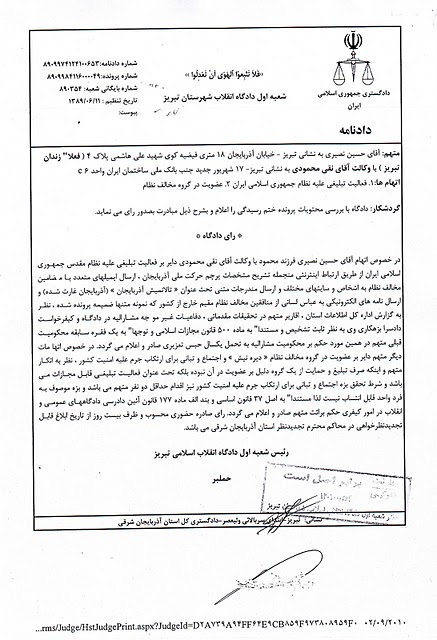 دادگستری جمهوری اسلامی
ایران
«فَلاَ تَتَّبِعُوا الْهَوَى أَن تَعْدِلُوا»
شعبه اول دادگاه انقلاب شهرستان تبریز
شماره دادنامه: ۸۹۰۹۹۷۴۱۲۴۱۰۰۶۵۳
شماره پرونده: ۸۹۰۹۹۸۴۱۱۶۰۰۰۰۴۹
شماره بایگانی شعبه: ۸۹۰۳۵۴
تاریخ تنظیم : ۱۳۸۹/۰۶/۱۱
پیوست:
دادنامه
متهم: آقای حسین نصیری به نشانی تبریز - خیابان آذربایجان ۱۸ متری فیضیه کوی شهید علی هاشمی پلاک ۴ ( فعلا" زندان
تبریز ) با وکالت آقای نقی محمودی به نشانی تبریز- ۱۷ شهریور جدید جنب بانک ملی ساختمان ایران واحد c ۶
اتهام ها: ۱. فعالیت تبلیغی علیه نظام جمهوری اسلامی ایران ۲. عضویت در گروه مخالف نظام
گردشکار: دادگاه با بررسی محتویات پرونده ختم رسیدگی را اعلام و بشرح ذیل مبادرت بصدور رای می نماید.
* رای دادگاه *
در خصوص اتهام آقای حسین نصیری فرزند محمود با وکالت آقای نقی محمودی دایر بر فعالیت تبلیغی علیه نظام مقدس جمهوری
اسلامی ایران از طریق ارتباط اینترنتی منجمله تشریح مشخصات پرچم حرکت ملی آذربایجان ، ارسال ایمیلهای متعدد با مضامین
مخالف نظام به اشخاص و سایتهای مختلف و ارسال مندرجات متنی تحت عنوان « تالانمیش آذربایجان » (آذربایجان غارت شده) و
ارسال نامه های الکترونیکی به عباس لسانی از منافقین مخالف نظام مقیم خارج از کشور که نمونه متنها ضمیمه پرونده شده ، نظر
به گزارش اداره کل اطلاعات استان ، اقاریر متهم در تحقیقات مقدماتی ، دفاعیات غیر موجه مشارالیه در دادگاه و کیفرخواست
دادسرا بزهکاری وی به نظر ثابت تشخیص و مستندا" به ماده ۵۰۰ قانون مجازات اسلامی و توجها" به یک فقره سابقه محکومیت
قبلی متهم در همین مورد حکم به محکومیت مشارالیه به تحمل یکسال حبس تعزیری صادر و اعلام می گردد. در خصوص اتها مات
دیگر متهم دایر بر عضویت در گروه مخالف نظام « دیره نیش » و اجتماع و تبانی برای ارتکاب جرم علیه امنیت کشور ، نظر به انکار
متهم و اینکه صرف تبلیغ و حمایت از یک گروه دلیل بر عضویت در آن نبوده بلکه تحت عنوان فعالیت تبلیغی قابل مجازات می
باشد و شرط تحقق بزه اجتماع و تبانی برای ارتکاب جرم علیه امنیت کشور نیز اقدام حداقل دو نفر متهم می باشد و بزه موصوف به
فرد واحد قابل انتساب نیست لذا مستندا" به اصل ۳۷ قانون اساسی و بند الف ماده ۱۷۷ قانون آئین دادرسی دادگاههای عمومی و
انقلاب در امور کیفری حکم برائت متهم صادر و اعلام می گردد. رای صادره حضوری محسوب و ظرف بیست روز از تاریخ ابلاغ قابل
تجدیدنظرخواهی در محاکم محترم تجدیدنظر استان آذربایجان شرقی می باشد.
رئیس شعبه اول دادگاه انقلاب اسلامی تبریز
حملبر
برابر اصل است
نشانی: تبریز - ولیعصر-دادگستری کل استان آذربایجان شرقی
...rms/Judge/HstJudgePrint.aspx?JudgeId=D۲A۷۳۹A۹۴FF۶۴E۹CB۸۵۹F۹۷۳۸۰۸۹۵۹F۰ ۰۲/۰۹/۲۰۱۰